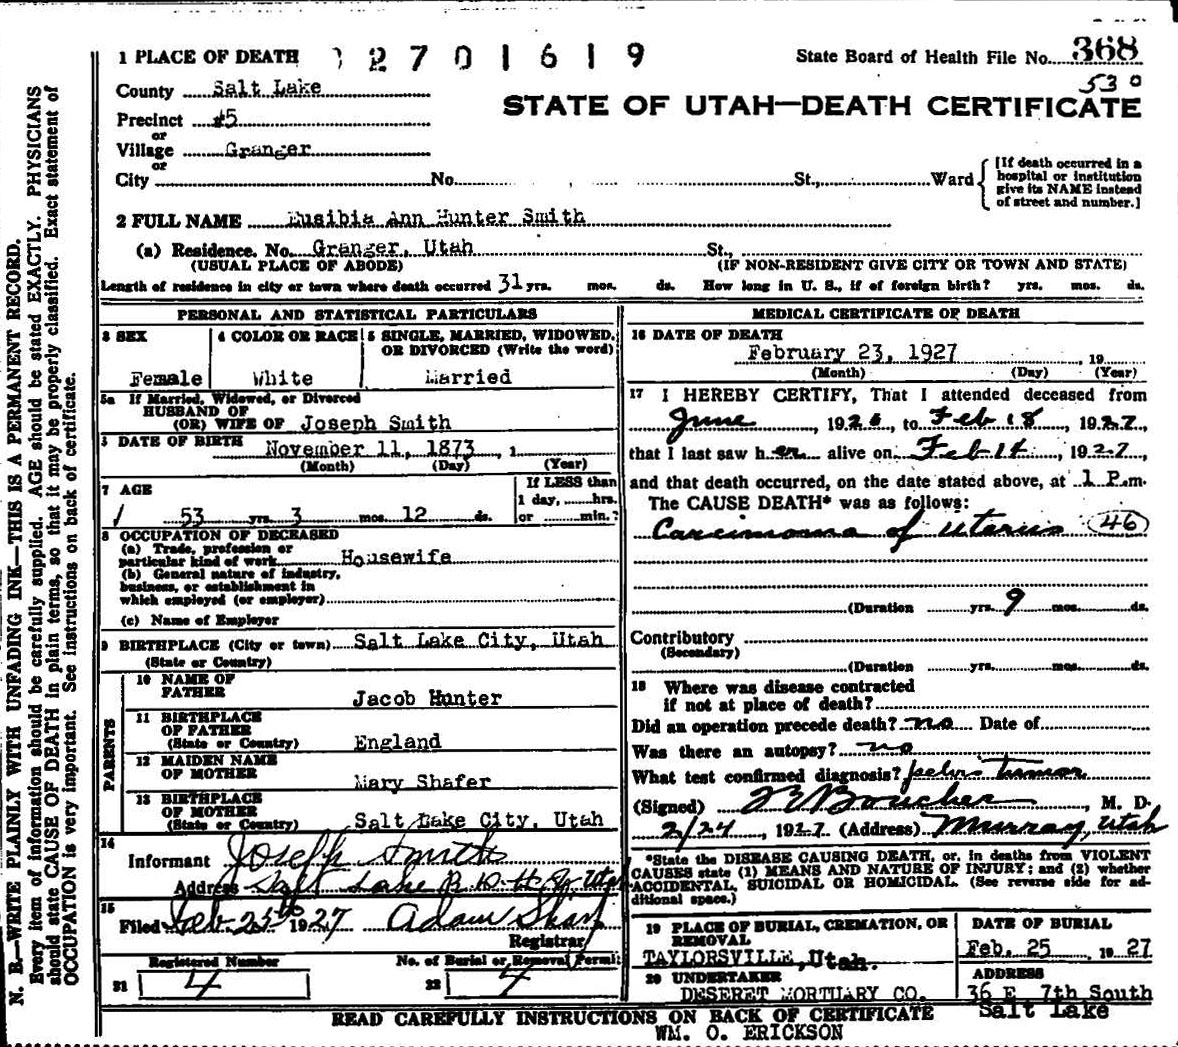 N. B.—WRITE PLAINLY WITH UNFADING INK—THIS IS A PERMANENT RECORD.
Every item of information should be carefully supplied. AGE should be stated EXACTLY. PHYSICIANS
should state CAUSE OF DEATH in plain terms, so that it may be properly classified. Exact statement of
OCCUPATION is very important. See instructions on back of certificate.
1 PLACE OF DEATH 2701619 State Board of Health File No. 368
530
County Salt Lake
STATE OF UTAH—DEATH CERTIFICATE
Precinct #5
or
Village Granger
or
City No. St., Ward
[If death occurred in a
hospital or institution
give its NAME instead
of street and number.]
2 FULL NAME Eusibia Ann Hunter Smith
(a) Residence. No. Granger, Utah St.,
(USUAL PLACE OF ABODE) (IF NON-RESIDENT GIVE CITY OR TOWN AND STATE)
Length of residence in city or town where death occurred 31 yrs. mos. ds. How long in U. S., if of foreign birth? yrs. mos. ds.
PERSONAL AND STATISTICAL PARTICULARS
3 SEX
Female
4 COLOR OR RACE
White
5 SINGLE, MARRIED, WIDOWED,
OR DIVORCED (Write the word)
Married
5a If Married, Widowed, or Divorced
HUSBAND OF
(OR) WIFE OF Joseph Smith
DATE OF BIRTH November 11, 1873, 1
(Month) (Day) (Year)
7 AGE
53 yrs. 3 mos. 12 ds.
If LESS than
1 day, hrs.
or min.?
8 OCCUPATION OF DECEASED
(a) Trade, profession or
particular kind of work Housewife
(b) General nature of industry,
business, or establishment in
which employed (or employer)
(c) Name of Employer
9 BIRTHPLACE (City or town) Salt Lake City, Utah
(State or Country)
PARENTS
10 NAME OF
FATHER Jacob Hunter
11 BIRTHPLACE
OF FATHER
(State or Country) England
12 MAIDEN NAME
OF MOTHER Mary Shafer
13 BIRTHPLACE
OF MOTHER
(State or Country) Salt Lake City, Utah
14
Informant Joseph Smith
Address Salt Lake Utah
15
Filed Feb. 25th 1927 Adam Sharp
Registrar
Registered Number No. of Burial or Removal Permit
21 4 22 4
MEDICAL CERTIFICATE OF DEATH
16 DATE OF DEATH
February 23, 1927, 19
(Month) (Day) (Year)
17 I HEREBY CERTIFY, That I attended deceased from
June, 1926, to Feb 18, 1927,
that I last saw her alive on Feb 14, 1927,
and that death occurred, on the date stated above, at 1 P.m.
The CAUSE DEATH* was as follows:
Carcinoma of uterus 46
(Duration yrs. 9 mos. ds.
Contributory
(Secondary)
(Duration yrs. mos. ds.
18 Where was disease contracted
if not at place of death?
Did an operation precede death? no Date of
Was there an autopsy? no
What test confirmed diagnosis? pelvis Tumor
(Signed) Boucher, M. D.
2/24, 1927 (Address) Murray, Utah
*State the DISEASE CAUSING DEATH, or, in deaths from VIOLENT
CAUSES state (1) MEANS AND NATURE OF INJURY; and (2) whether
ACCIDENTAL, SUICIDAL OR HOMICIDAL. (See reverse side for ad-
ditional space.)
19 PLACE OF BURIAL, CREMATION, OR
REMOVAL
TAYLORSVILLE, Utah.
DATE OF BURIAL
Feb. 25, 1927
20 UNDERTAKER
DESERET MORTUARY CO.
ADDRESS
36 E. 7th South
Salt Lake
READ CAREFULLY INSTRUCTIONS ON BACK OF CERTIFICATE
WM. O. ERICKSON